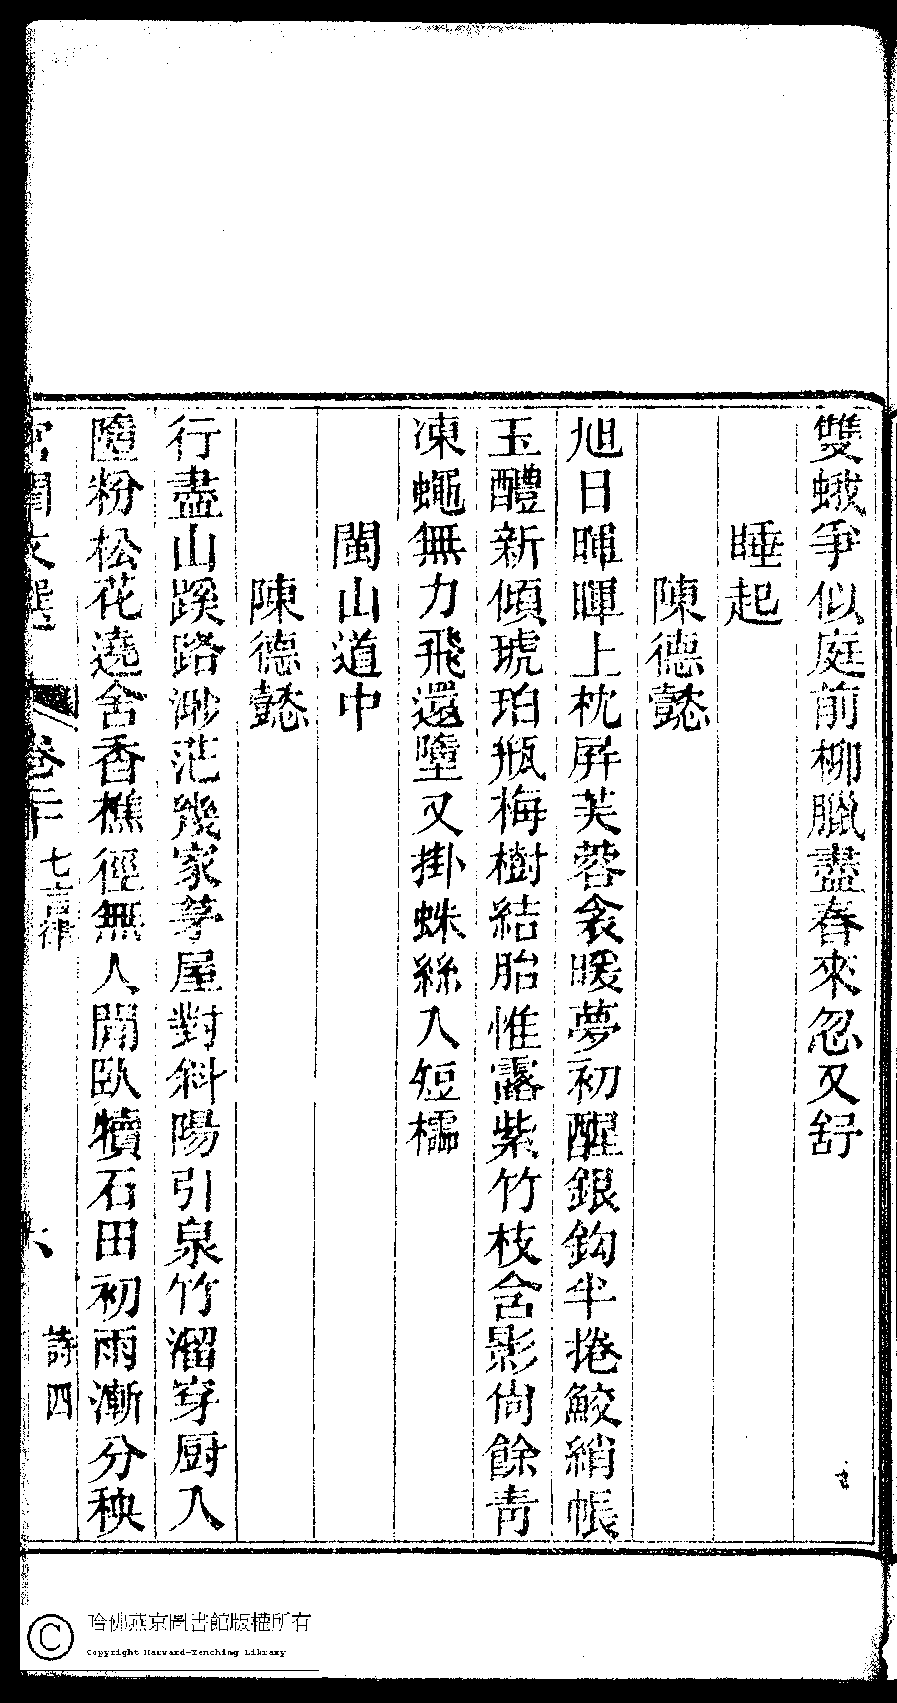 雙蛾爭似庭前柳臘盡春來忽又舒
睡起
陳德懿
旭日暉暉上枕屏芙蓉衾暖夢初醒銀鈎半捲鮫綃帳
玉醴新傾琥珀瓶梅樹結胎惟露紫竹枝含影尙餘靑
凍蠅無力飛還墮又掛蛛絲入短櫺
閩山道中
陳德懿
行盡山蹊路渺茫幾家茅屋對斜陽引泉竹溜穿厨入
隨粉松花遶舍香樵徑無人閒臥犢石田初雨漸分秧
宮閨文選 卷二十 七言律 六 詩四
哈佛燕京圖書館版權所有
Copyright Harvard-Yenching Library